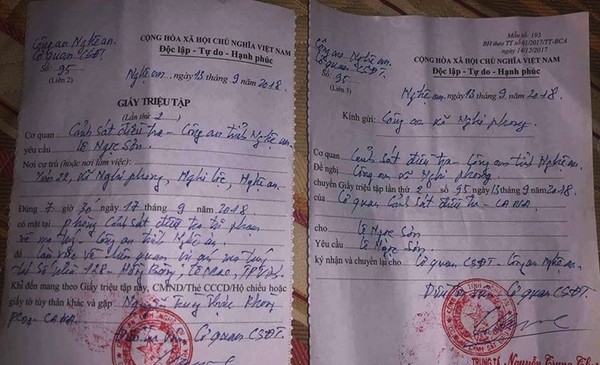 Công an Nghệ an.
Cơ quan CSĐT.
Số: 95
(Liên 2)
CỘNG HÒA XÃ HỘI CHỦ NGHĨA VIỆT NAM
Độc lập - Tự do - Hạnh phúc
Nghệ an, ngày 13 tháng 9 năm 2018
GIẤY TRIỆU TẬP
(Lần thứ 2)
Cơ quan Cảnh sát điều tra - Công an tỉnh Nghệ an.
yêu cầu Lê Ngọc Sơn.
Nơi cư trú (hoặc nơi làm việc):
Xóm 22, xã Nghi phong, Nghi lộc, Nghệ an.
Đúng 7 giờ 30 ngày 17 tháng 9 năm 2018
có mặt tại phòng Cảnh sát điều tra tội phạm
về ma túy - Công an tỉnh Nghệ an.
để làm việc về liên quan vụ ma túy
tại 128
Khi đến mang theo Giấy triệu tập này, CMND/Thẻ CCCD/Hộ chiếu hoặc
giấy tờ tùy thân khác và gặp Nguyễn Trung
Cơ quan CSĐT.
Mẫu số: 193
BH theo TT số 61/2017/TT-BCA
ngày 14/12/2017
Công an Nghệ an.
Cơ quan CSĐT.
Số: 95
(Liên 3)
CỘNG HÒA XÃ HỘI CHỦ NGHĨA VIỆT NAM
Độc lập - Tự do - Hạnh phúc
Nghệ an, ngày 13 tháng 9 năm 2018.
Kính gửi: Công an xã Nghi phong.
Cơ quan Cảnh sát điều tra - Công an tỉnh Nghệ an.
Đề nghị Công an xã Nghi phong
chuyển Giấy triệu tập lần thứ 2 số 95 ngày 13 tháng 9 năm 2018.
của Cơ quan Cảnh sát điều tra - CA NA.
cho Lê Ngọc Sơn
Yêu cầu Lê Ngọc Sơn.
ký nhận và chuyển lại cho Cơ quan CSĐT - Công an Nghệ an.
Điều tra viên Cơ quan CSĐT.
Nguyễn Trung